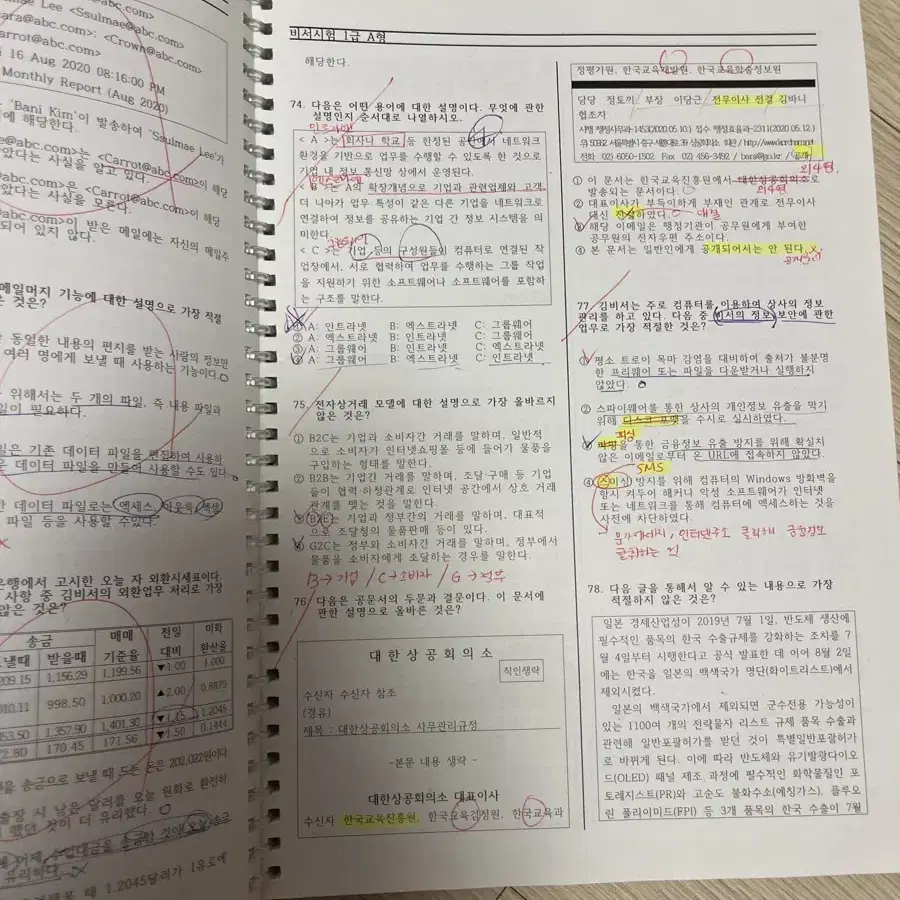 @abc.com>
Mae Lee <Ssulmae@abc.com>
ara@abc.com>; <Crown@abc.com>
arrot@abc.com>
16 Aug 2020 08:16:00 PM
Monthly Report (Aug 2020)
'Bani Kim'이 발송하여 'Ssulmae Lee'가
에 해당한다.
a@abc.com>는 <Carrot@abc.com>이 해당
았다는 사실을 알고 있다.
@abc.com>은 <Carrot@abc.com>이 해당
았다는 사실을 모른다.
@abc.com>이 받은 메일에는 자신의 메일주
되어 있지 않다.
메일머지 기능에 대한 설명으로 가장 적절
은 것은?
동일한 내용의 편지를 받는 사람의 정보만
여러 명에게 보낼 때 사용하는 기능이다.
위해서는 두 개의 파일, 즉 내용 파일과
일이 필요하다.
일은 기존 데이터 파일을 편집하여 사용하
운 데이터 파일을 만들어 사용할 수도 있다.
한 데이터 파일로는 엑세스, 아웃룩, 엑셀
파일 등을 사용할 수 있다.
은행에서 고시한 오늘 자 외환시세표이다.
사항 중 김비서의 외환업무 처리로 가장
않은 것은?
송금 매매 전일 미화
보낼때 받을때 기준율 대비 환산율
209.15 1,156.29 1,199.56 ▼1.00 1.000
010.11 998.50 1,000.20 ▲2.00 0.8879
453.50 1,357.90 1,401.30 1.2045
72.80 170.45 171.56 ▼1.50 0.1444
을 송금으로 보낼 때 드는 돈은 202,022원이다
출장 시 남은 달러를 오늘 원화로 환전하
했던 것이 더 유리했다.
유리하다.
때 1.2045달러가 1유로에
비서시험 1급 A형
해당한다.
74. 다음은 어떤 용어에 대한 설명이다. 무엇에 관한
설명인지 순서대로 나열하시오.
인트라넷
< A >는 회사나 학교 등 한정된 공간에서 네트워크
환경을 기반으로 업무를 수행할 수 있도록 한 것으로
기업 내 정보 통신망 상에서 운영된다.
엑스트라넷
< B >는 A의 확장개념으로 기업과 관련업체와 고객,
더 나아가 업무 특성이 같은 다른 기업을 네트워크로
연결하여 정보를 공유하는 기업 간 정보 시스템을 의
미한다.
그룹웨어
< C >는 기업 등의 구성원들이 컴퓨터로 연결된 작
업장에서, 서로 협력하여 업무를 수행하는 그룹 작업
을 지원하기 위한 소프트웨어나 소프트웨어를 포함하
는 구조를 말한다.
① A: 인트라넷 B: 엑스트라넷 C: 그룹웨어
② A: 엑스트라넷 B: 인트라넷 C: 그룹웨어
③ A: 그룹웨어 B: 인트라넷 C: 엑스트라넷
④ A: 그룹웨어 B: 엑스트라넷 C: 인트라넷
75. 전자상거래 모델에 대한 설명으로 가장 올바르지
않은 것은?
① B2C는 기업과 소비자간 거래를 말하며, 일반적
으로 소비자가 인터넷쇼핑몰 등에 들어가 물품을
구입하는 형태를 말한다.
② B2B는 기업간 거래를 말하며, 조달·구매 등 기업
들이 협력·하청관계로 인터넷 공간에서 상호 거래
관계를 맺는 것을 말한다.
기업과 정부간의 거래를 말하며, 대표적
으로 조달청의 물품판매 등이 있다.
④ G2C는 정부와 소비자간 거래를 말하며, 정부에서
물품을 소비자에게 조달하는 경우를 말한다.
B→기업 / C→소비자 / G→정부
76. 다음은 공문서의 두문과 결문이다. 이 문서에
관한 설명으로 올바른 것은?
대 한 상 공 회 의 소
직인생략
수신자 수신자 참조
(경유)
제목 : 대한상공회의소 사무관리규정
-본문 내용 생략 -
대한상공회의소 대표이사
수신자 한국교육진흥원, 한국교육검정원, 한국교육과
정평가원, 한국교육개발원, 한국교육학술정보원
담당 정토끼 부장 이당근 전무이사 전결 김바니
협조자
시행 행정사무과-1453(2020.05.10.) 접수 행정효율과-2311(2020.05.12.)
우 50962 서울특별시 중구 세종대로 39 상공회의소 회관 / http://www.korcham.net
전화 02) 6050-1502 Fax 02) 456-3492 / bani@go.kr / 공개
① 이 문서는 한국교육진흥원에서 대한상공회의소로
발송되는 문서이다.
② 대표이사가 부득이하게 부재인 관계로 전무이사
대신 전결하였다. 대결
③ 해당 이메일은 행정기관이 공무원에게 부여한
공무원의 전자우편 주소이다.
④ 본 문서는 일반인에게 공개되어서는 안 된다.
77. 김비서는 주로 컴퓨터를 이용하여 상사의 정보
관리를 하고 있다. 다음 중 비서의 정보 보안에 관한
업무로 가장 적절한 것은?
① 평소 트로이 목마 감염을 대비하여 출처가 불분명
한 프리웨어 또는 파일을 다운받거나 실행하지
않았다.
② 스파이웨어를 통한 상사의 개인정보 유출을 막기
위해 디스크 포맷을 수시로 실시하였다.
피싱
③ 파밍을 통한 금융정보 유출 방지를 위해 확실치
않은 이메일로부터 온 URL에 접속하지 않았다.
SMS
④ 스미싱 방지를 위해 컴퓨터의 Windows 방화벽을
항시 켜두어 해커나 악성 소프트웨어가 인터넷
또는 네트워크를 통해 컴퓨터에 액세스하는 것을
사전에 차단하였다.
문자메세지, 인터넷주소 클릭하면 금융정보
78. 다음 글을 통해서 알 수 있는 내용으로 가장
적절하지 않은 것은?
일본 경제산업성이 2019년 7월 1일, 반도체 생산에
필수적인 품목의 한국 수출규제를 강화하는 조치를 7
월 4일부터 시행한다고 공식 발표한 데 이어 8월 2일
에는 한국을 일본의 백색국가 명단(화이트리스트)에서
제외시켰다.
일본의 백색국가에서 제외되면 군수전용 가능성이
있는 1100여 개의 전략물자 리스트 규제 품목 수출과
관련해 일반포괄허가를 받던 것이 특별일반포괄허가
로 바뀌게 된다. 이에 따라 반도체와 유기발광다이오
드(OLED) 패널 제조 과정에 필수적인 화학물질인 포
토레지스트(PR)와 고순도 불화수소(에칭가스), 플루오
린 폴리이미드(FPI) 등 3개 품목의 한국 수출이 7월